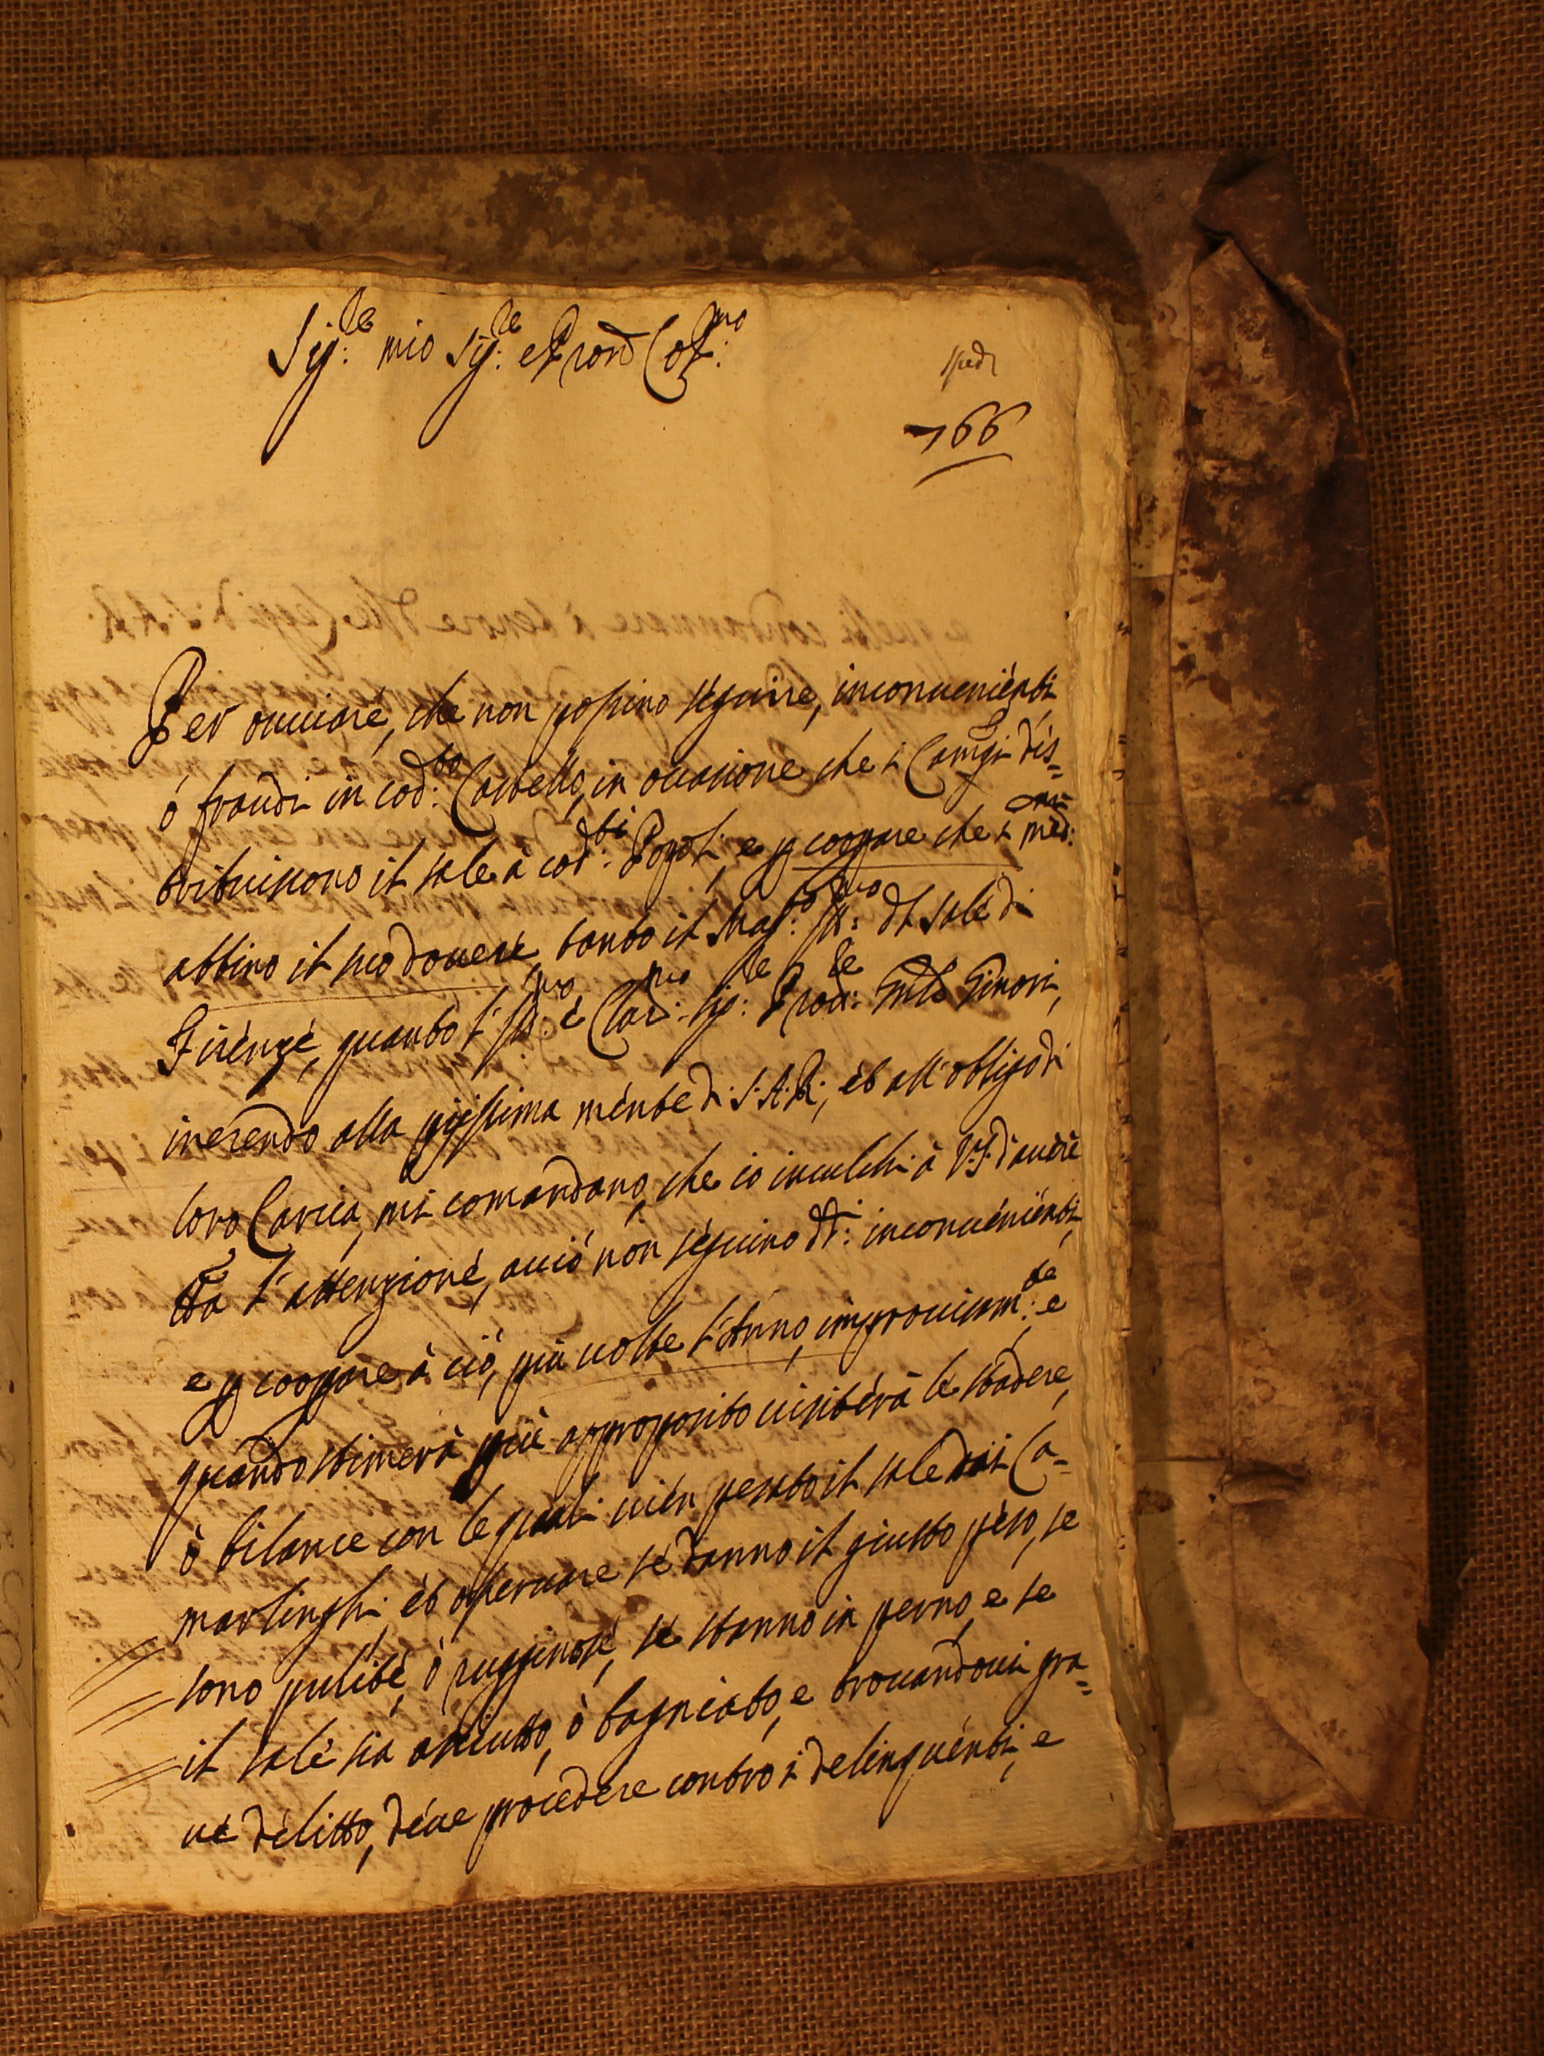 Sig:re mio Sig:re e Pron Col:mo
spedi
166
Per ouuiare, che non possino seguire, inconuenienti
ò fraudi in cod:to Castello, in occasione che i Camgi dis=
tribuiscono il sale à cod:ti Popoli, e p coopare che i med:mi
abbino il suo douere, tanto il Mag:o Ill:mo dl sale di
Firenze, quanto l'Ill:mo e Clar:mo Sig:re Prou:re Ginori,
inerendo alla giustissima mente di S:A:R:, et all'obligo di
loro Carica, mi comandano, che io inculchi à V:S: d'auere
tta l'attenzione, acciò non seguino dti: inconuenienti,
e p coopare à ciò, più uolte l'Anno, improuisam:te e
quando stimerà più approposito uisiterà le stadere,
ò bilance con le quali uien pesato il sale dai Ca=
marlinghi, et osseruare se danno il giusto peso, se
sono pulite, ò rugginose, se stanno in perno, e se
il sale sia asciutto, ò bagniato, e trouandoui gra=
ue delitto, deue procedere contro i delinquenti, e